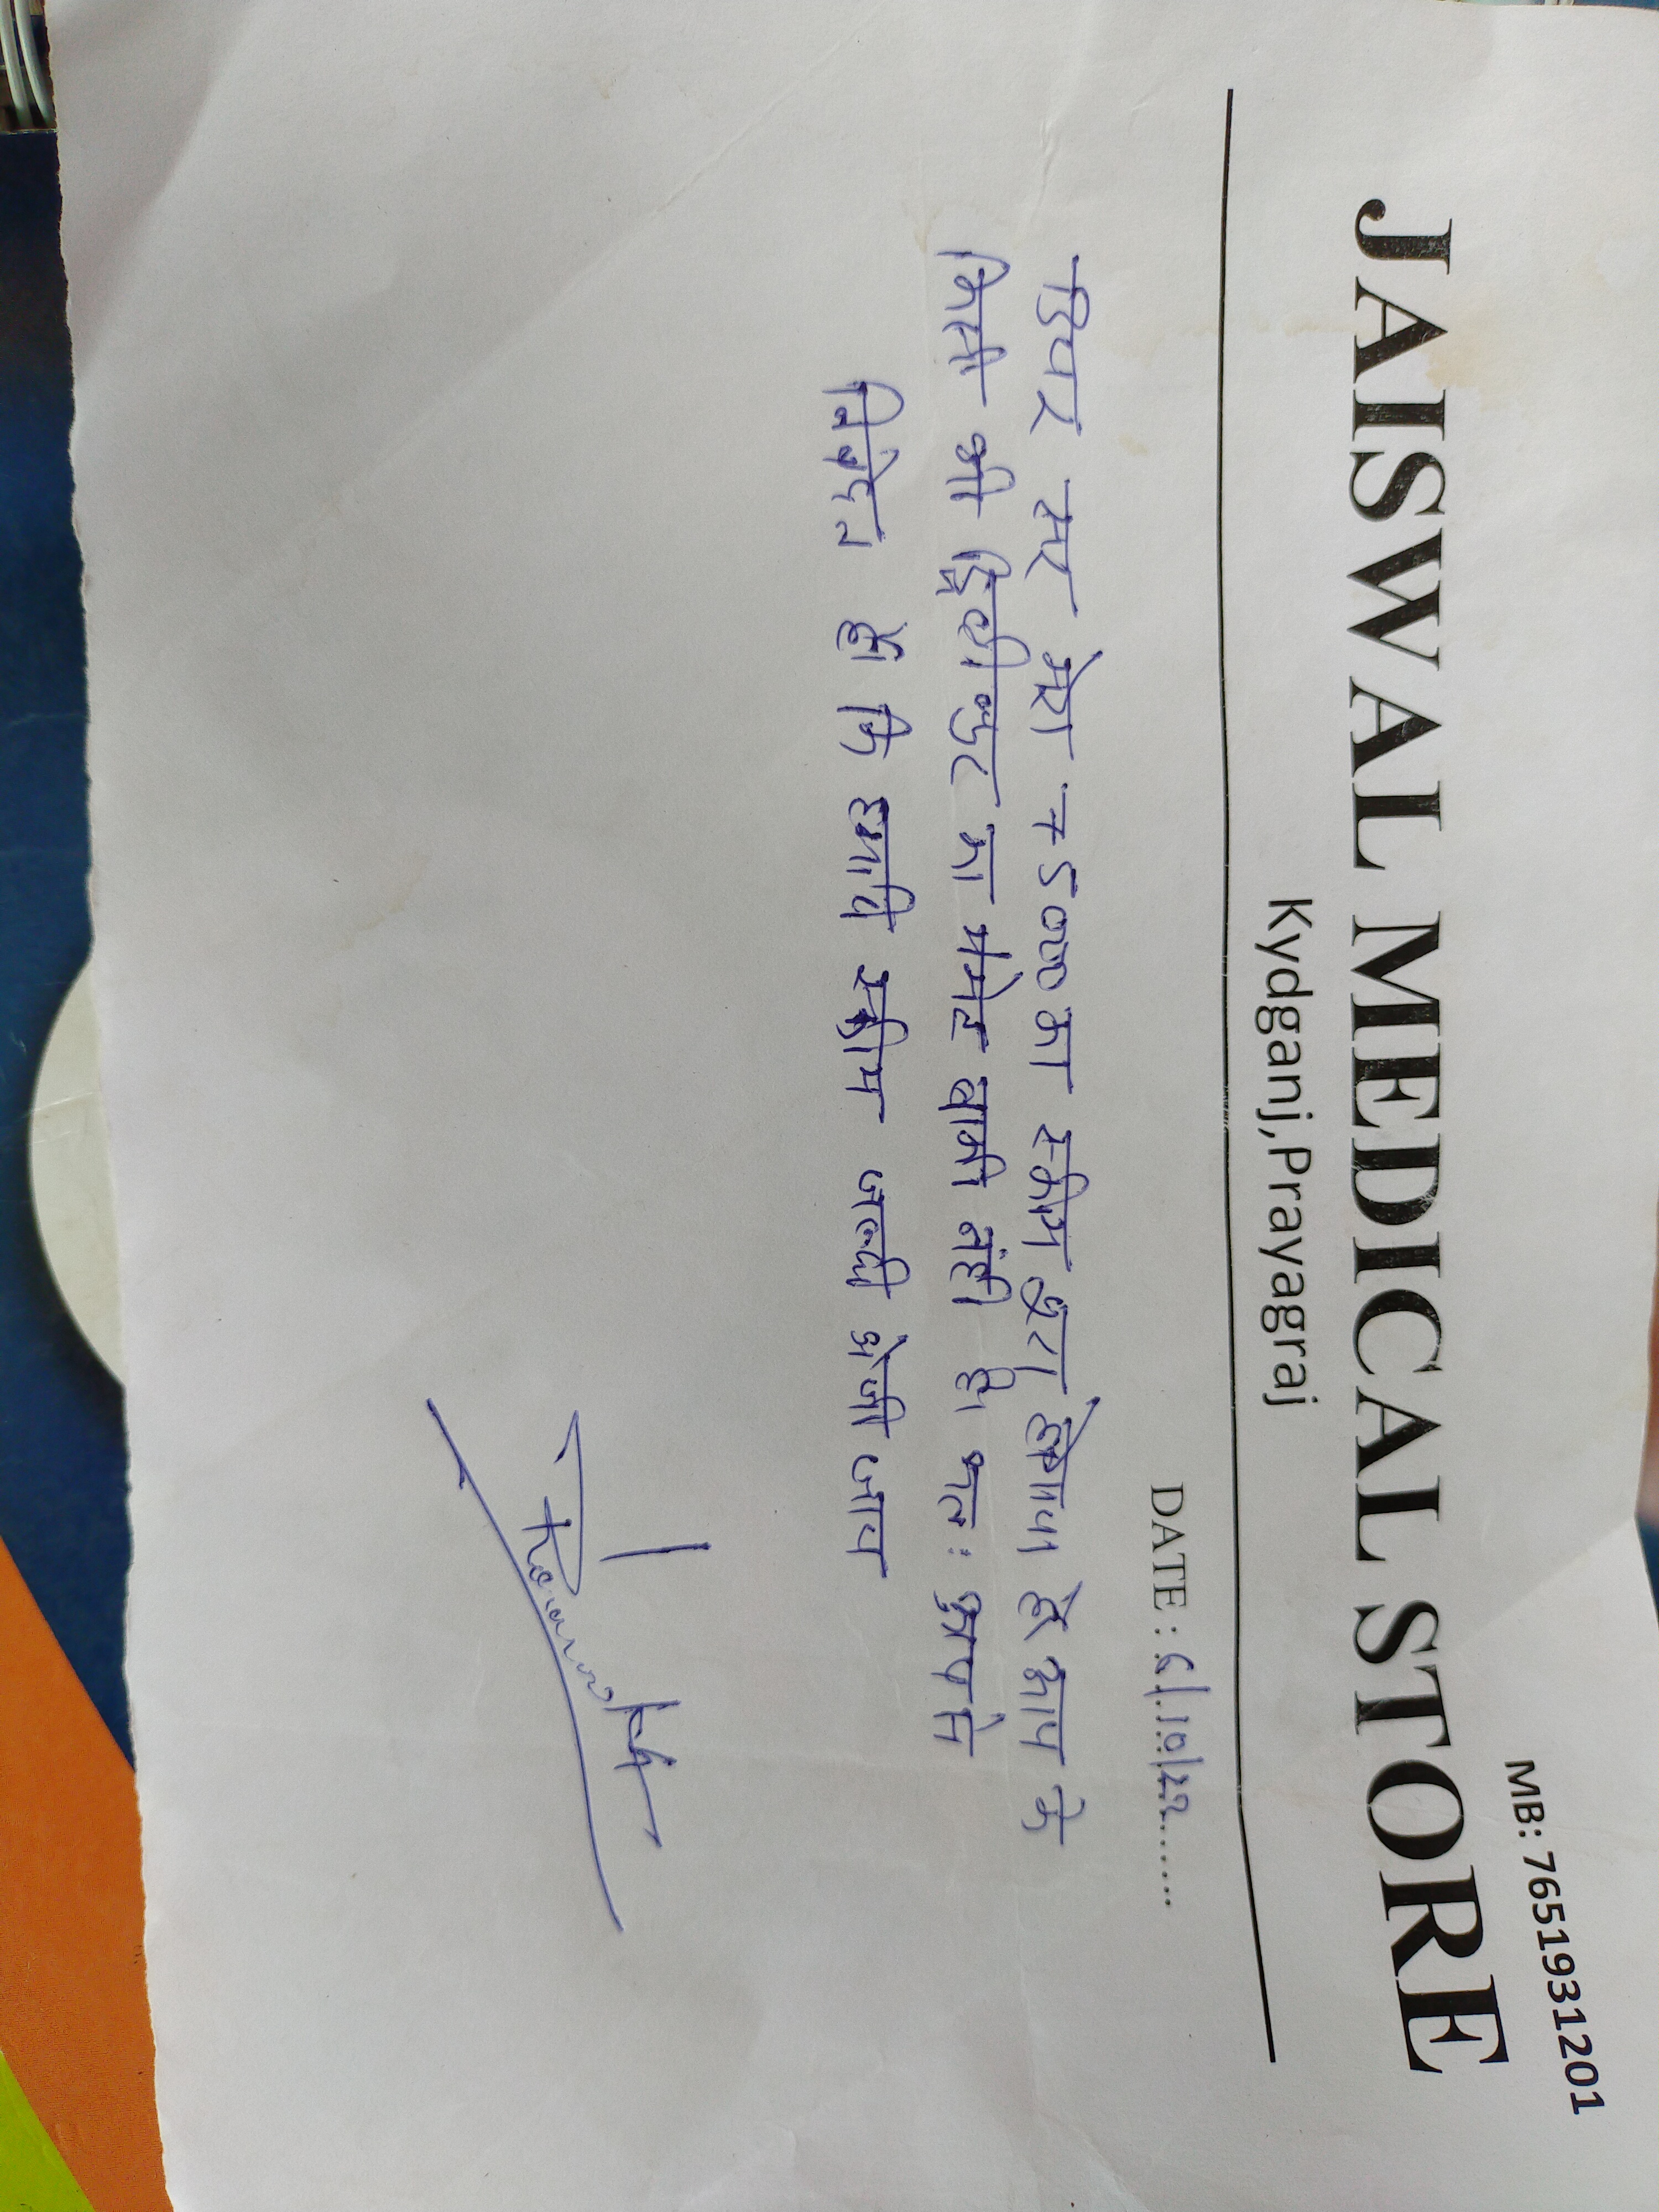 MB: 7651931201
JAISWAL MEDICAL STORE
Kydganj,Prayagraj
DATE : 6/10/22
डियर सर मेरा 75000 का स्कीम पुरा होगया है आप के
किसी भी डिस्ट्रीब्युटर का पेमेंट बाकी नंही है। अतः आप से
निवेदन है। कि हमारी स्कीम जल्दी भेजी जाय